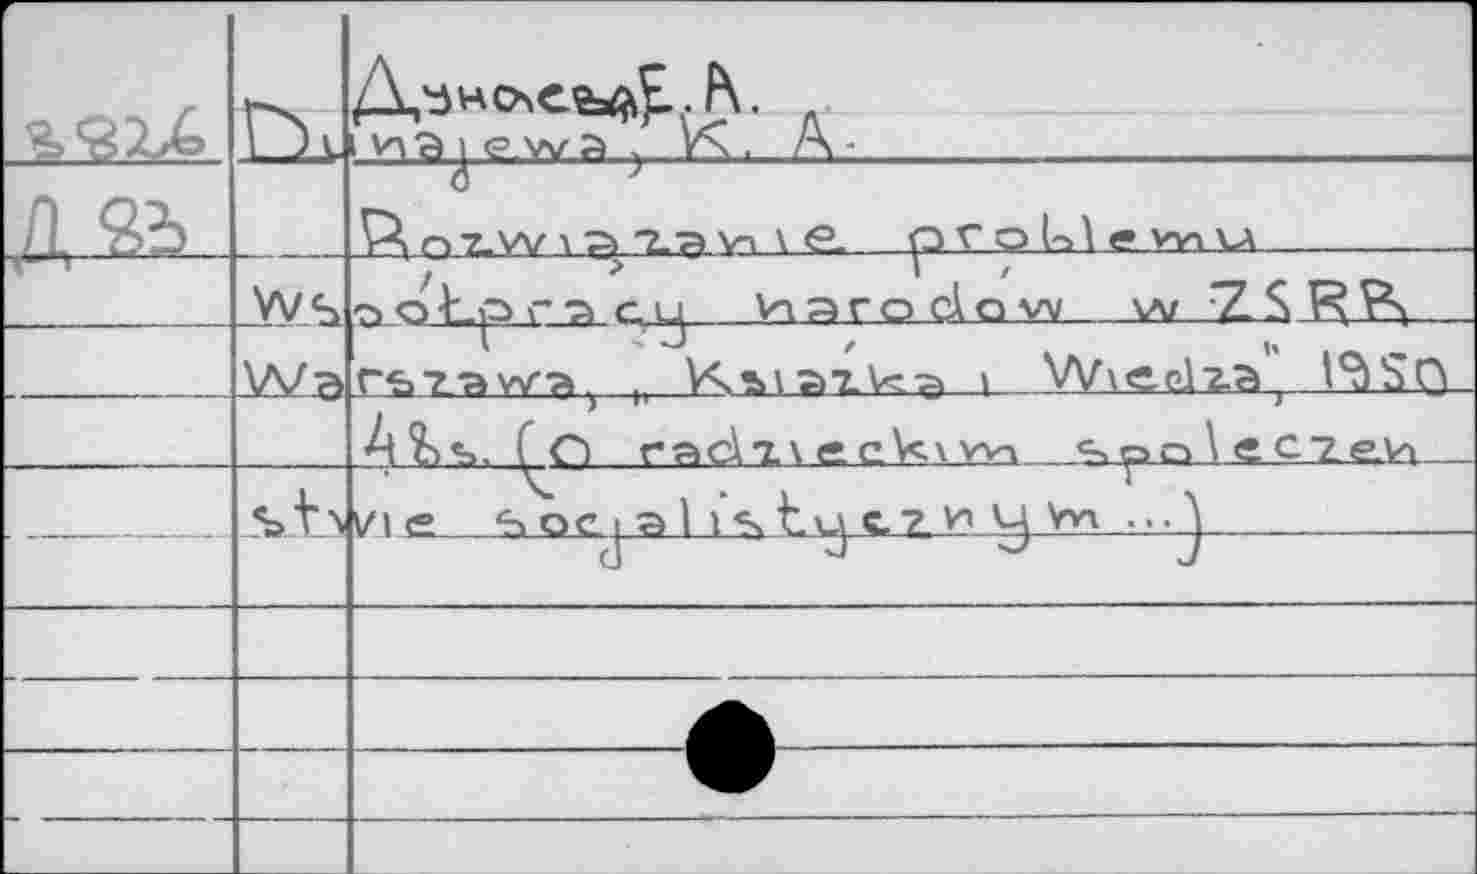 Дунаева, Е. А.
Dunajewa, K. A.
Д 83
Rozwiązanie problemu
współpracy narodów w ZSRR
Warszawa, „Książka i Wiedza", 1950
48 s. (O radzieckim społeczeń
stwie socjalistycznym ...)